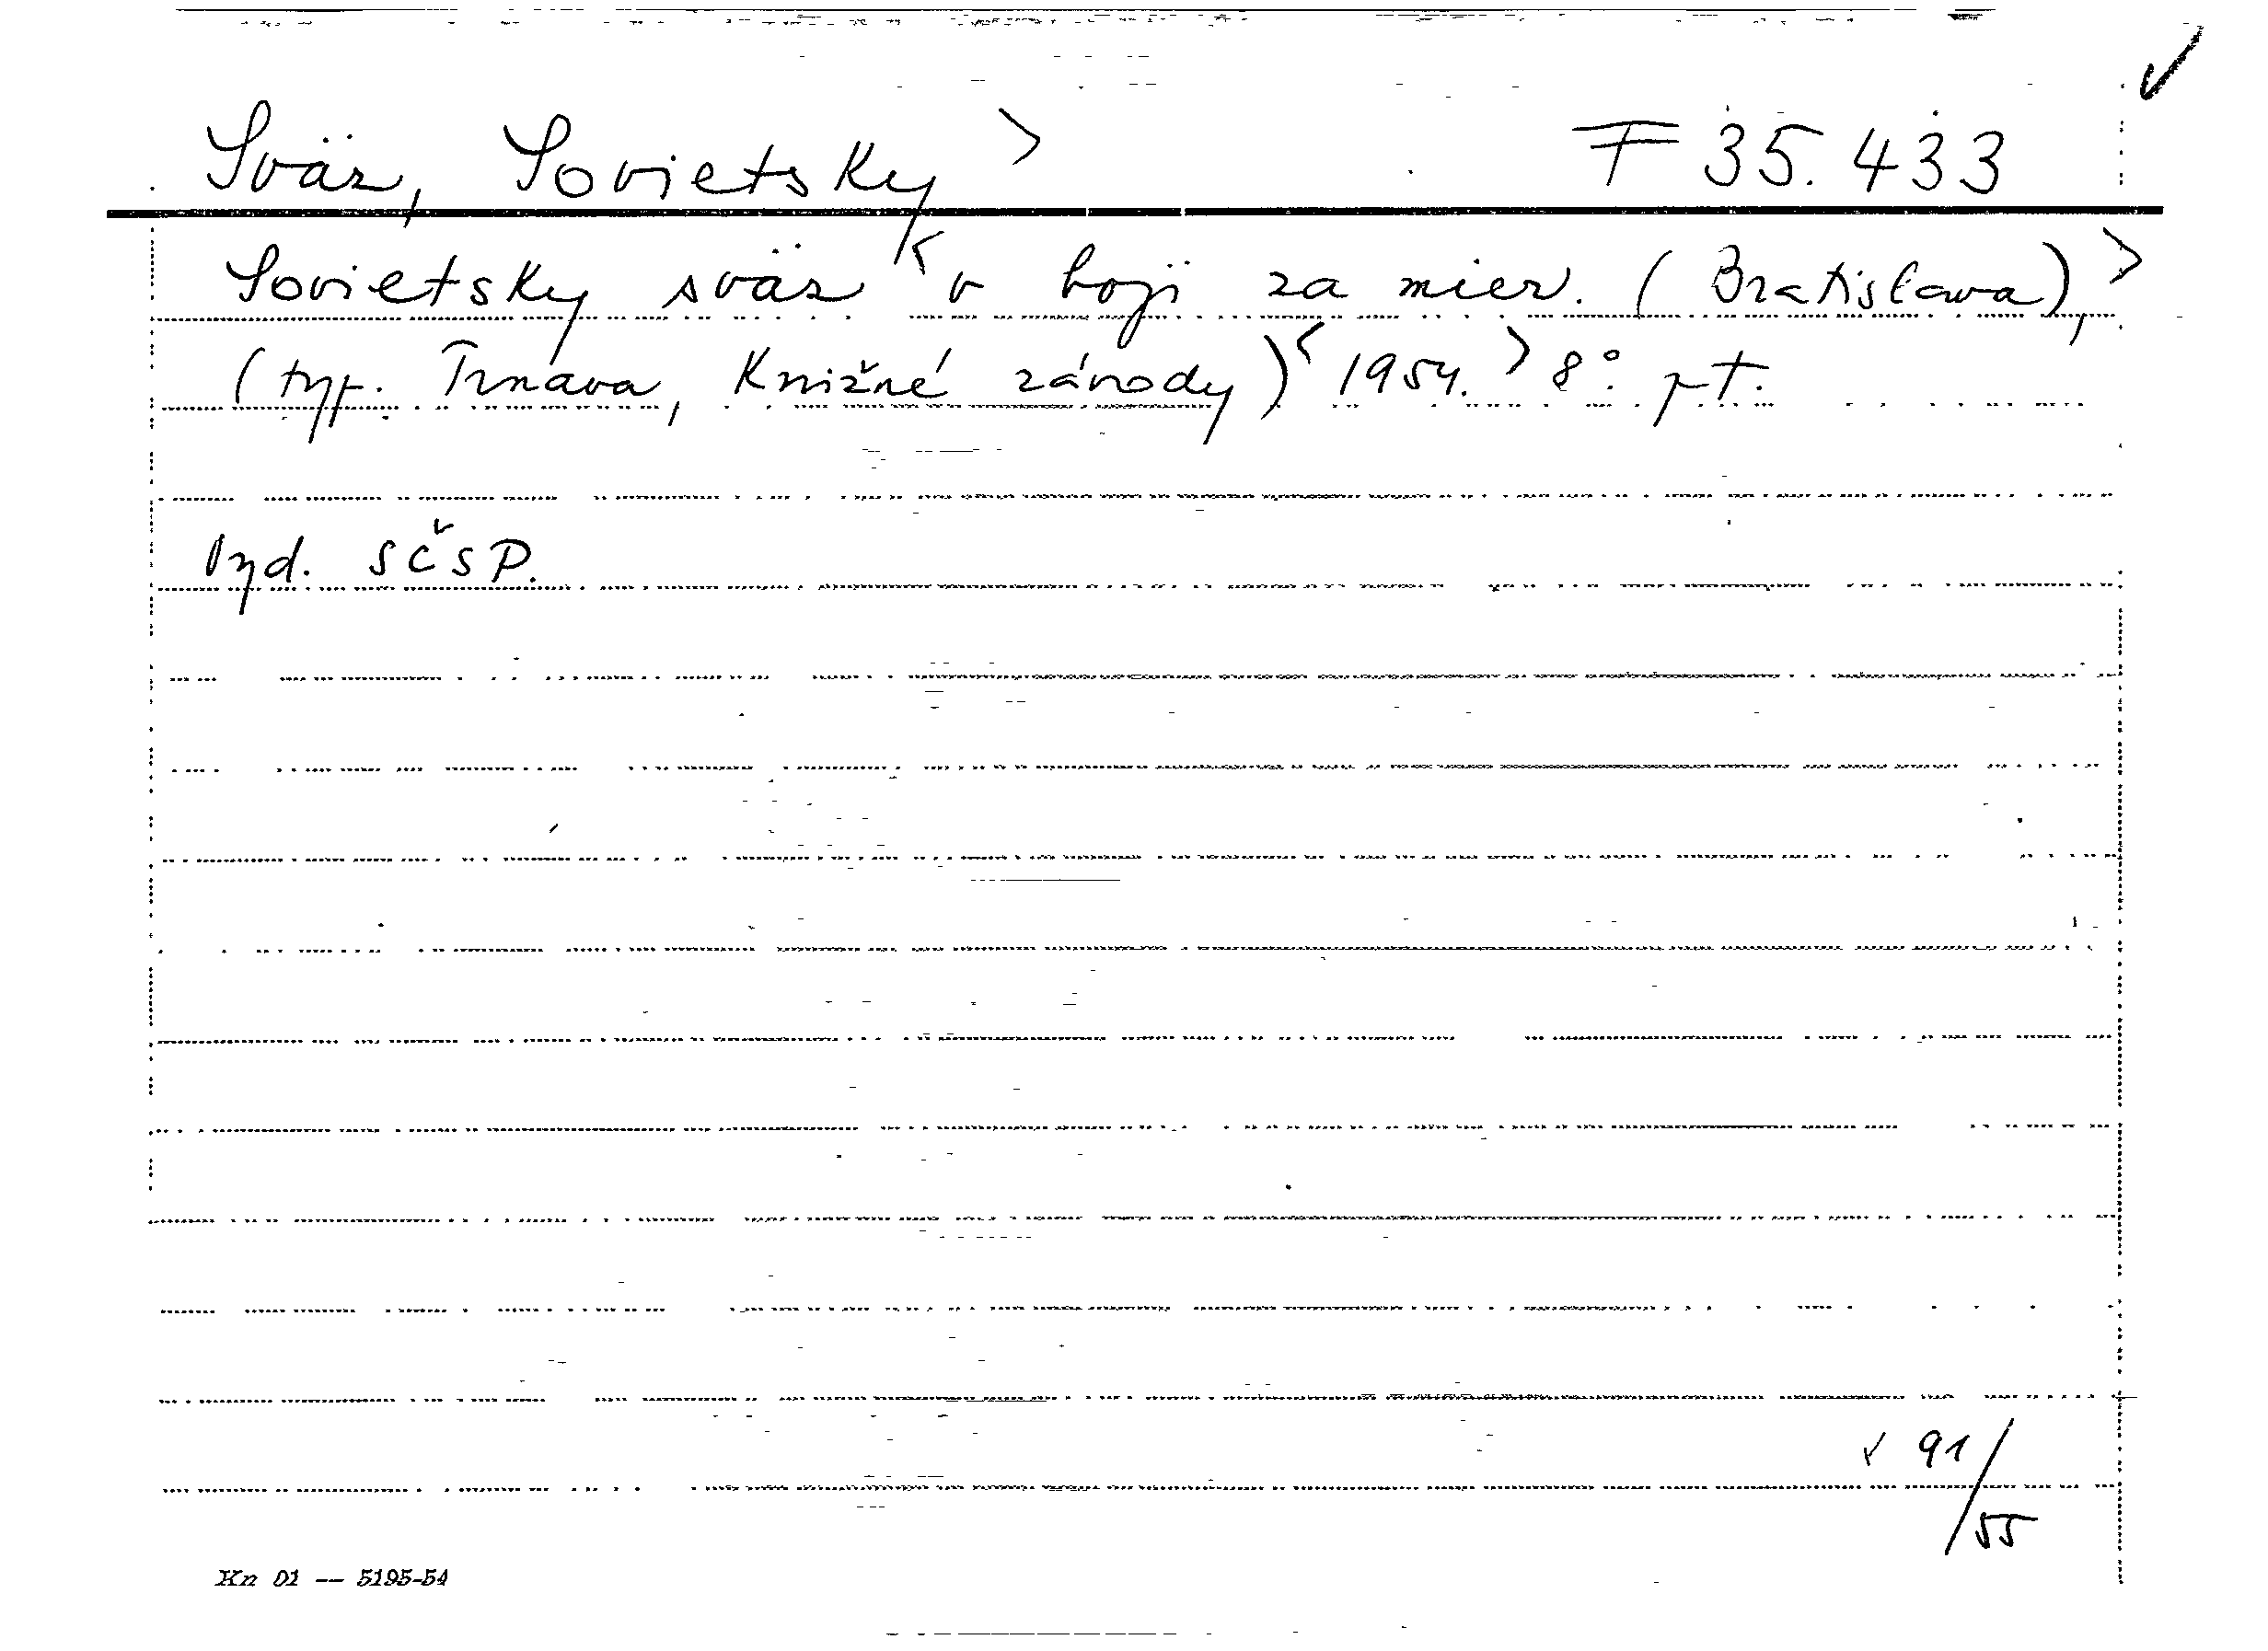 Sväz, Sovietsky > F 35.433
Sovietsky sväz < v boji za mier. (Bratislava), >
(typ. Trnava, Knižné závody) < 1954. > 8°. pt.
Vyd. SČSP.
✓ 91/55
Kn 01 — 5195-54